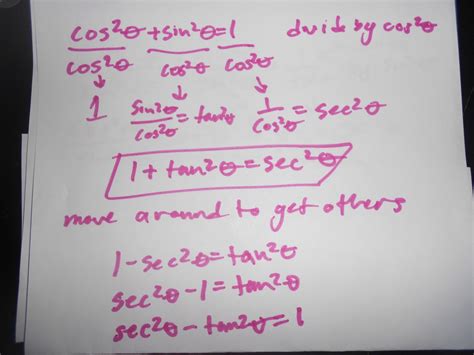 cos²θ + sin²θ = 1 divide by cos²θ
cos²θ cos²θ cos²θ
↓ ↓ ↓
1 sin²θ/cos²θ = tan²θ 1/cos²θ = sec²θ
1 + tan²θ = sec²θ
move around to get others
1 - sec²θ = tan²θ
sec²θ - 1 = tan²θ
sec²θ - tan²θ = 1